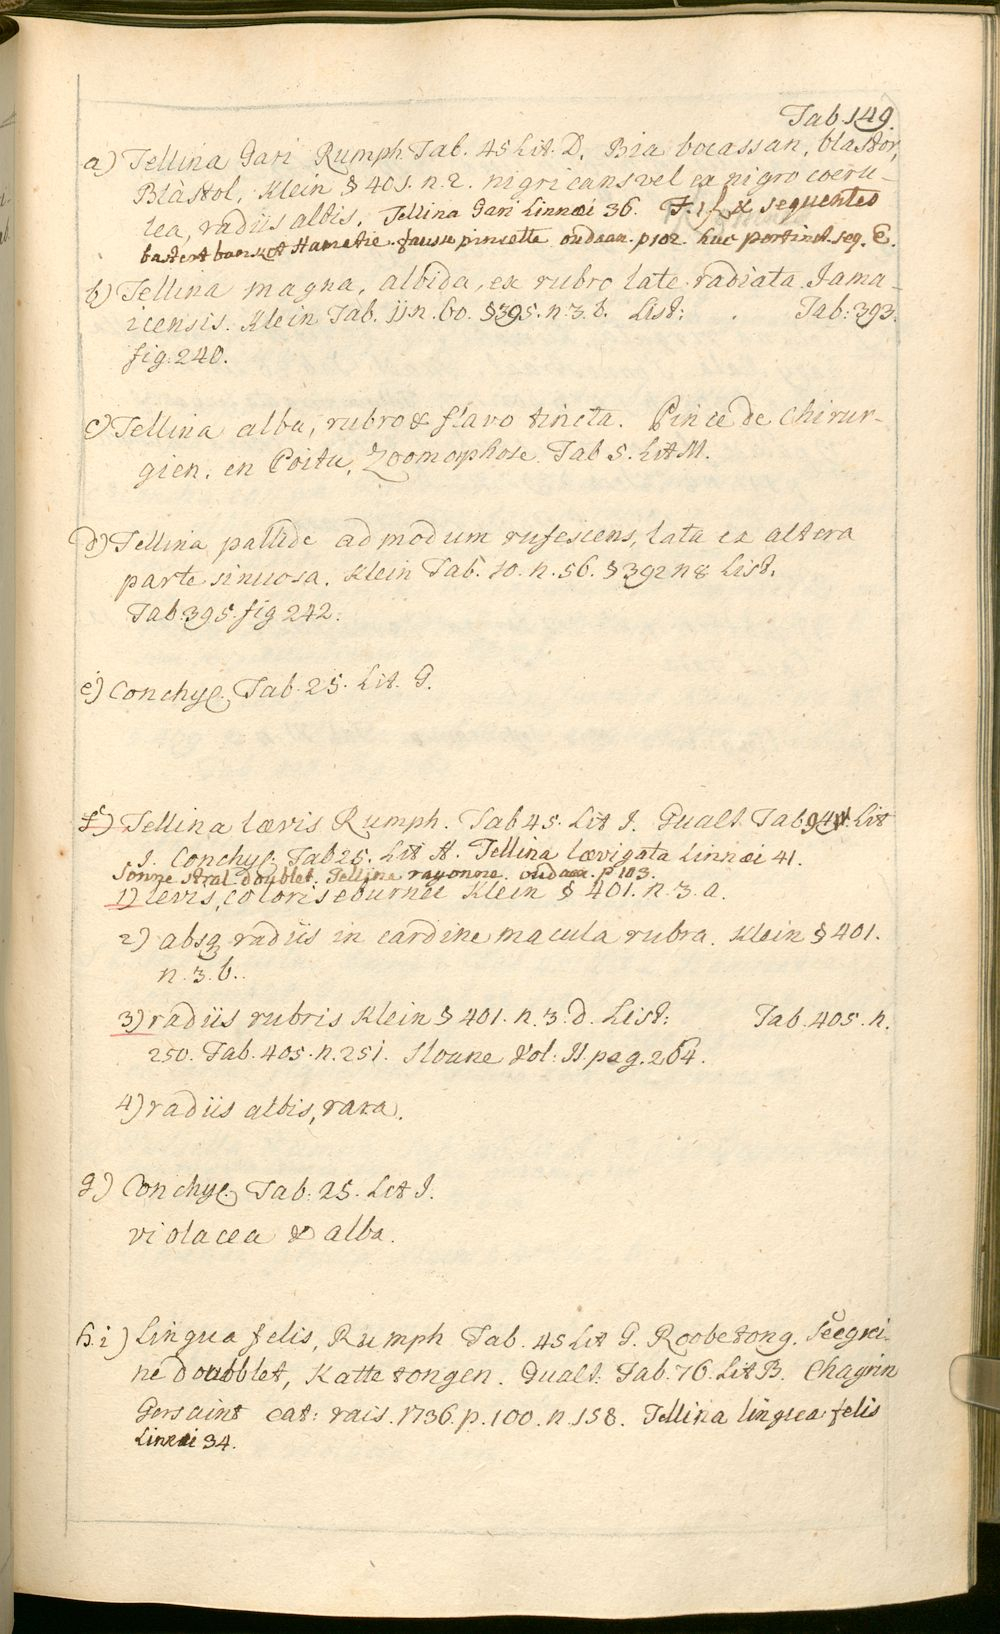 Tab. 149.
a) Tellina Gari Rumph. Tab. 45 Lit. D. Bia bocassan, blastor,
Blastol, Klein § 401. n. 2. nigricans vel ex nigro coeru-
lea, radiis albis, Tellina Gari Linnæi 36. & sequentes
bastert banket Hametje. fausse pincette oudaan. p 102. huc pertinet seq. C.
b) Tellina magna, albida, ex rubro late radiata Jama-
icensis. Klein Tab. 11 n. 60. § 395. n. 3. b. List: Tab: 393.
fig: 240.
c) Tellina alba, rubro & flavo tincta. Pince de Chirur-
gien, en Poitu, Zoomorphose. Tab 5. Lit M.
d) Tellina pallide admodum rufescens, lata ex altera
parte sinuosa. Klein Tab. 10. n. 56. § 392 n 8 List.
Tab. 395. fig 242.
e) Conchyl. Tab. 25. Lit. G.
f) Tellina lævis Rumph. Tab 45. Lit I. Gualt. Tab 94. Lit
I. Conchyl. Tab 25. Lit A. Tellina lævigata Linnæi 41.
Sonne stral doublet. Tellina rayonne. oudaan. p 103.
1) levis, coloris eburnei Klein § 401. n. 3. a.
2) absq radiis in cardine macula rubra. Klein § 401.
n. 3. b.
3) radiis rubris Klein § 401. n. 3. d. List: Tab. 405. n.
250. Tab. 405. n. 251. Sloane Vol: II. pag. 264.
4) radiis albis, rara.
g) Conchyl. Tab: 25. Lit I.
violacea & alba.
h. i) Lingua felis, Rumph Tab. 45 Lit G. Roobetong. Seegrei-
ne doubblet, Katte tongen. Gualt: Tab. 76. Lit B. Chagrin
Gersaint cat: rais. 1736. p. 100. n. 158. Tellina lingua felis
Linnæi 34.